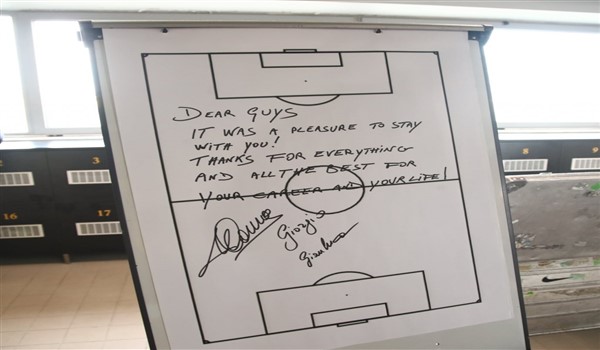 DEAR GUYS
IT WAS A PLEASURE TO STAY
WITH YOU!
THANKS FOR EVERYTHING
AND ALL THE BEST FOR
YOUR CAREER AND YOUR LIFE!
Giorgio
Gianluca
2
3
16
17
8
9